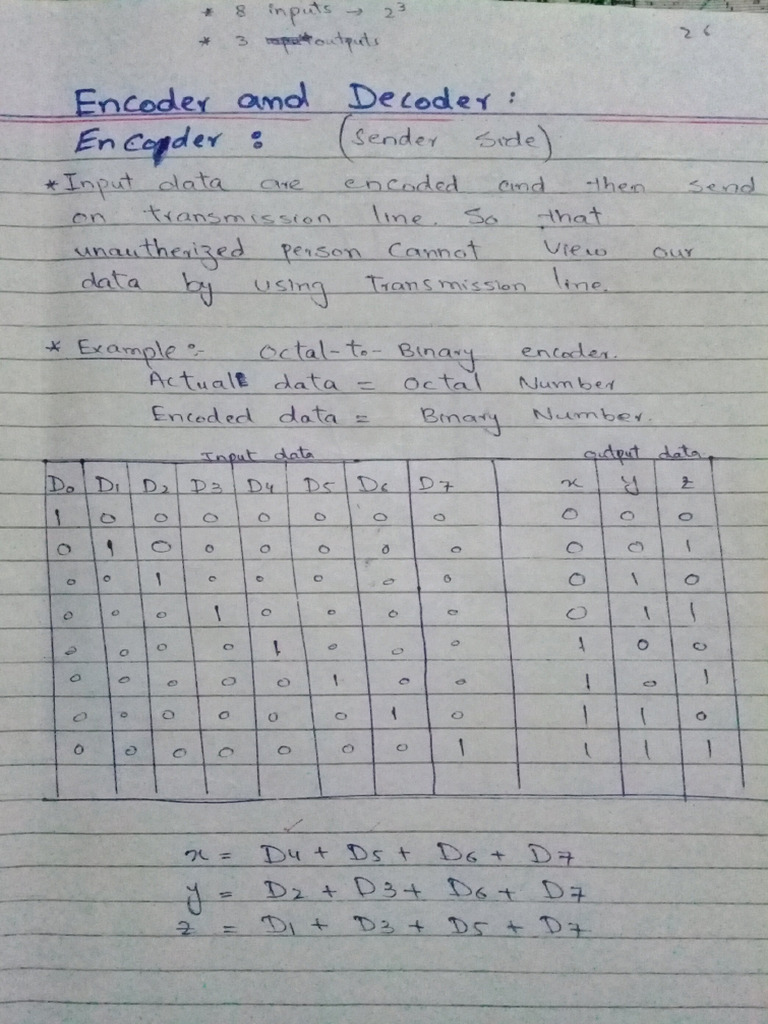 * 8 inputs → 2³
* 3 outputs
26
Encoder and Decoder:
Encoder : (Sender Side)
* Input data are encoded and then send
on transmission line. So that
unautherized person cannot view our
data by using Transmission line.
* Example:- Octal-to-Binary encoder.
Actual data = Octal Number
Encoded data = Binary Number.
Input data output data
D0 D1 D2 D3 D4 D5 D6 D7 x y z
1 0 0 0 0 0 0 0 0 0 0
0 1 0 0 0 0 0 0 0 0 1
0 0 1 0 0 0 0 0 0 1 0
0 0 0 1 0 0 0 0 0 1 1
0 0 0 0 1 0 0 0 1 0 0
0 0 0 0 0 1 0 0 1 0 1
0 0 0 0 0 0 1 0 1 1 0
0 0 0 0 0 0 0 1 1 1 1
x = D4 + D5 + D6 + D7
y = D2 + D3 + D6 + D7
z = D1 + D3 + D5 + D7